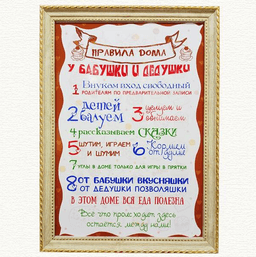 ПРАВИЛА ДОМА
У БАБУШКИ И ДЕДУШКИ
1 Внукам вход свободный
РОДИТЕЛЯМ ПО ПРЕДВАРИТЕЛЬНОЙ ЗАПИСИ
2 детей балуем
3 целуем и обнимаем
4 рассказываем СКАЗКИ
5 ШУТИМ, ИГРАЕМ И ШУМИМ
6 Кормим от души
7 УГЛЫ В ДОМЕ ТОЛЬКО ДЛЯ ИГРЫ В ПРЯТКИ
8 ОТ БАБУШКИ ВКУСНЯШКИ
ОТ ДЕДУШКИ ПОЗВОЛЯШКИ
В ЭТОМ ДОМЕ ВСЯ ЕДА ПОЛЕЗНА
Всё что происходит здесь
остаётся между нами!